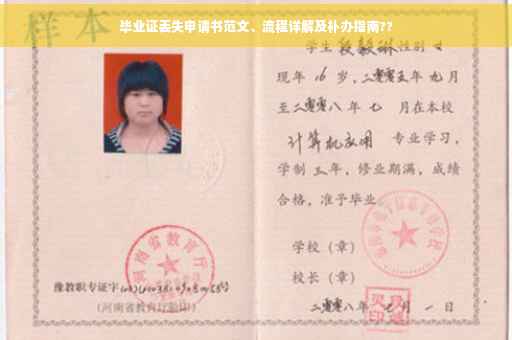 毕业证丢失申请书范文、流程详解及补办指南??
样本
学生段毅琳性别女
现年16岁,二零零五年九月
至二零零八年七月在本校
计算机应用专业学习,
学制三年,修业期满,成绩
合格,准予毕业
学校(章)
校长(章)
二零零八年七月一日
河南省教育厅
豫教职专证字
(河南省教育厅验印)